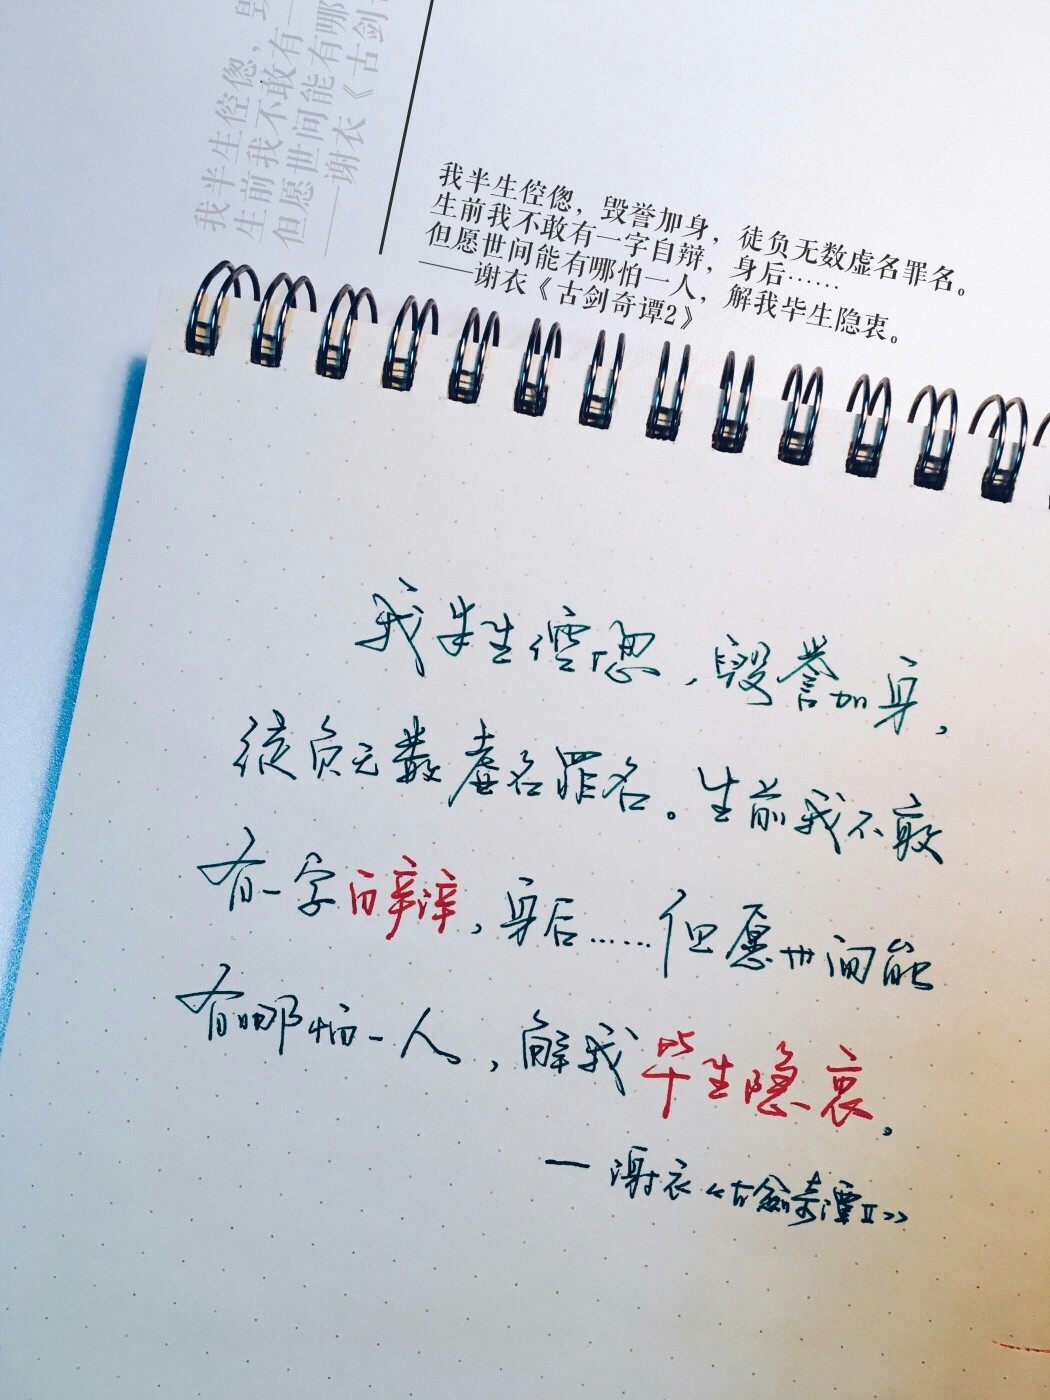 我半生倥偬，毁
生前我不敢有一
但愿世间能有哪
——谢衣《古剑
我半生倥偬，毁誉加身，徒负无数虚名罪名。
生前我不敢有一字自辩，身后……
但愿世间能有哪怕一人，解我毕生隐衷。
——谢衣《古剑奇谭2》
我半生倥偬，毁誉加身，
徒负无数虚名罪名。生前我不敢
有一字自辩，身后……但愿世间能
有哪怕一人，解我毕生隐衷。
—谢衣《古剑奇谭II》